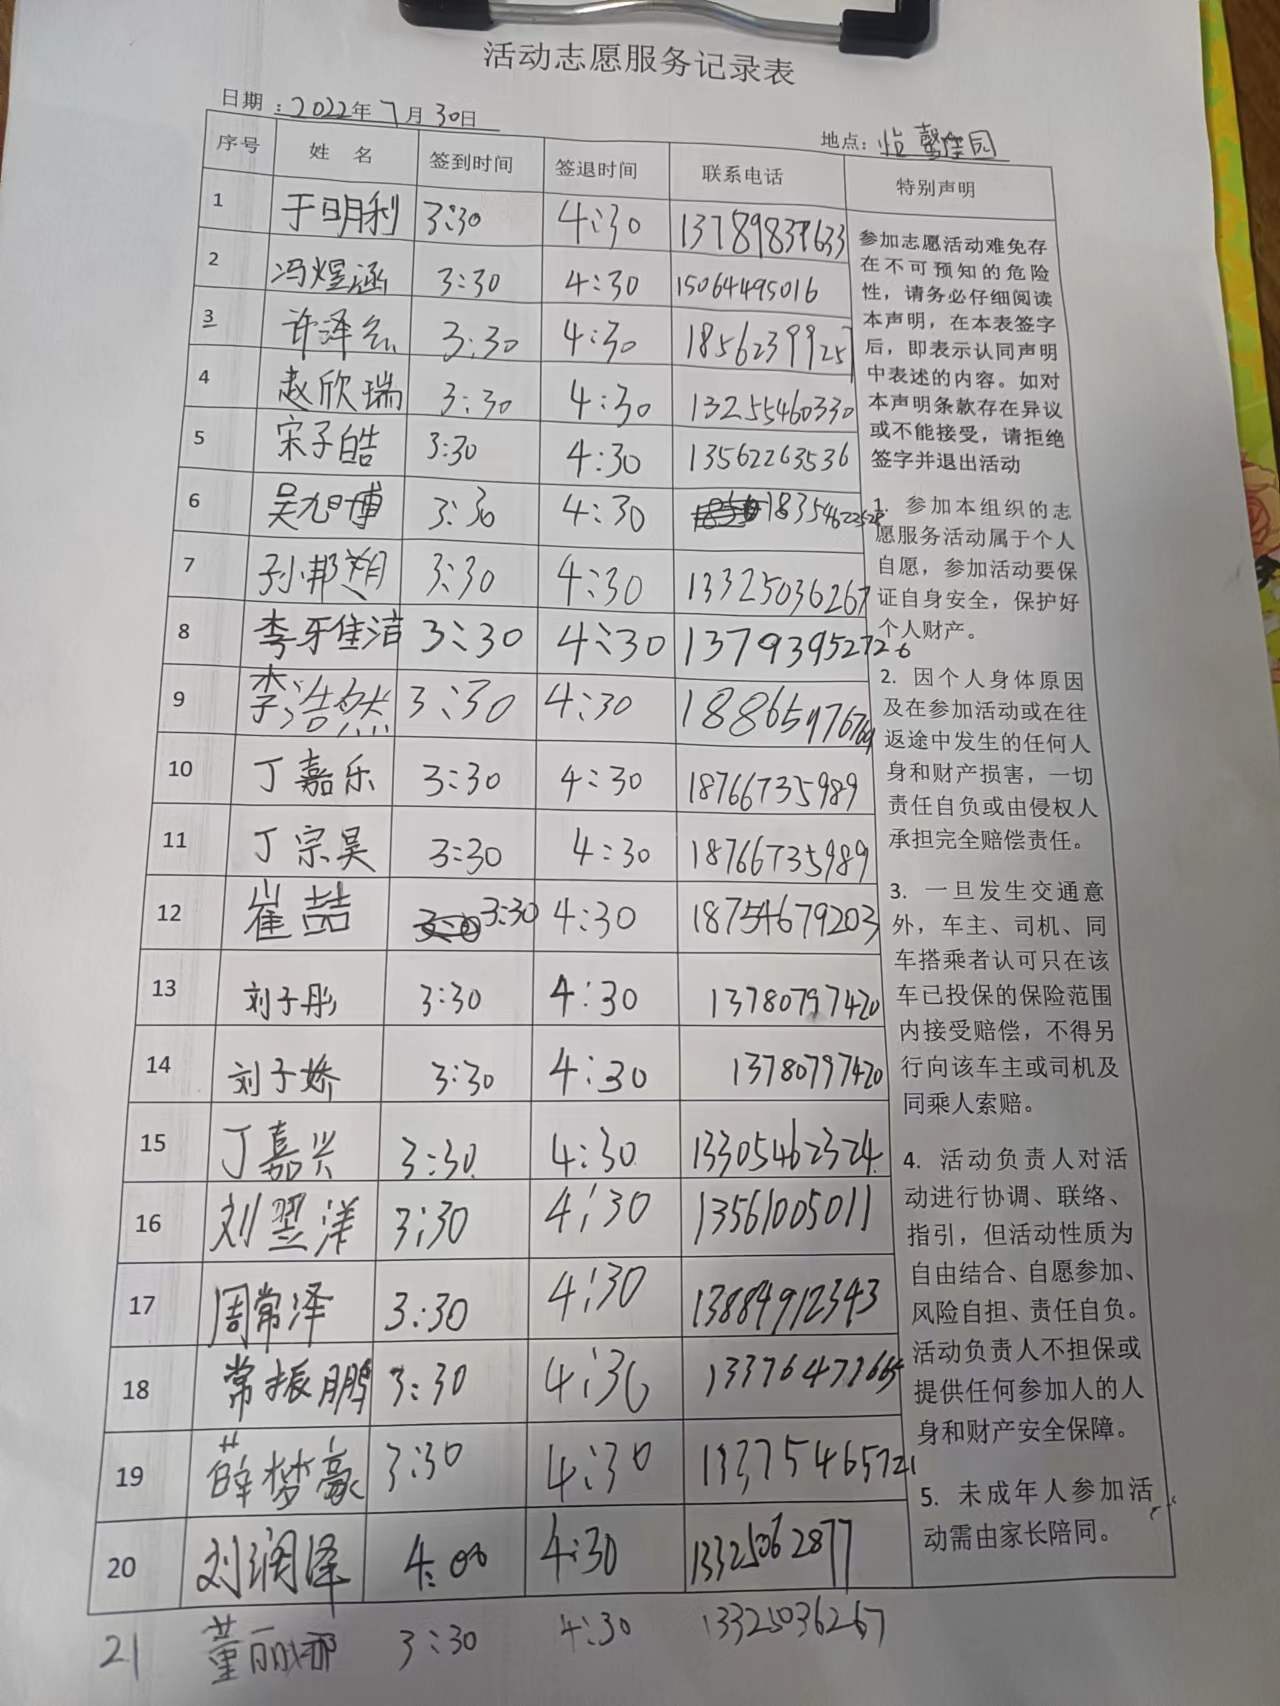 活动志愿服务记录表
日期：2022年7月30日
地点：怡馨佳园
序号 姓 名 签到时间 签退时间 联系电话 特别声明
1 于明利 3:30 4:30 13789839633
2 冯煜涵 3:30 4:30 15064495016
3 许泽 3:30 4:30 18562399257
4 赵欣瑞 3:30 4:30 13255460330
5 宋子皓 3:30 4:30 13562263536
6 吴旭博 3:30 4:30
7 孙邦翔 3:30 4:30 13325036267
8 李牙佳洁 3:30 4:30 13793952726
9 李浩然 3:30 4:30 18865976769
10 丁嘉乐 3:30 4:30 18766735989
11 丁宗昊 3:30 4:30 18766735989
12 崔喆 3:30 4:30 18754679203
13 刘子彤 3:30 4:30 13780797420
14 刘子娇 3:30 4:30 13780797420
15 丁嘉兴 3:30 4:30 13305462324
16 刘翌洋 3:30 4:30 13561005011
17 周常泽 3:30 4:30 13884912343
18 常振鹏 3:30 4:30
19 薛梦豪 3:30 4:30 13375465721
20 刘润泽 4:00 4:30 13325062877
21 董丽娜 3:30 4:30 13325036267
参加志愿活动难免存
在不可预知的危险
性，请务必仔细阅读
本声明，在本表签字
后，即表示认同声明
中表述的内容。如对
本声明条款存在异议
或不能接受，请拒绝
签字并退出活动
1. 参加本组织的志
愿服务活动属于个人
自愿，参加活动要保
证自身安全，保护好
个人财产。
2. 因个人身体原因
及在参加活动或在往
返途中发生的任何人
身和财产损害，一切
责任自负或由侵权人
承担完全赔偿责任。
3. 一旦发生交通意
外，车主、司机、同
车搭乘者认可只在该
车已投保的保险范围
内接受赔偿，不得另
行向该车主或司机及
同乘人索赔。
4. 活动负责人对活
动进行协调、联络、
指引，但活动性质为
自由结合、自愿参加、
风险自担、责任自负。
活动负责人不担保或
提供任何参加人的人
身和财产安全保障。
5. 未成年人参加活
动需由家长陪同。